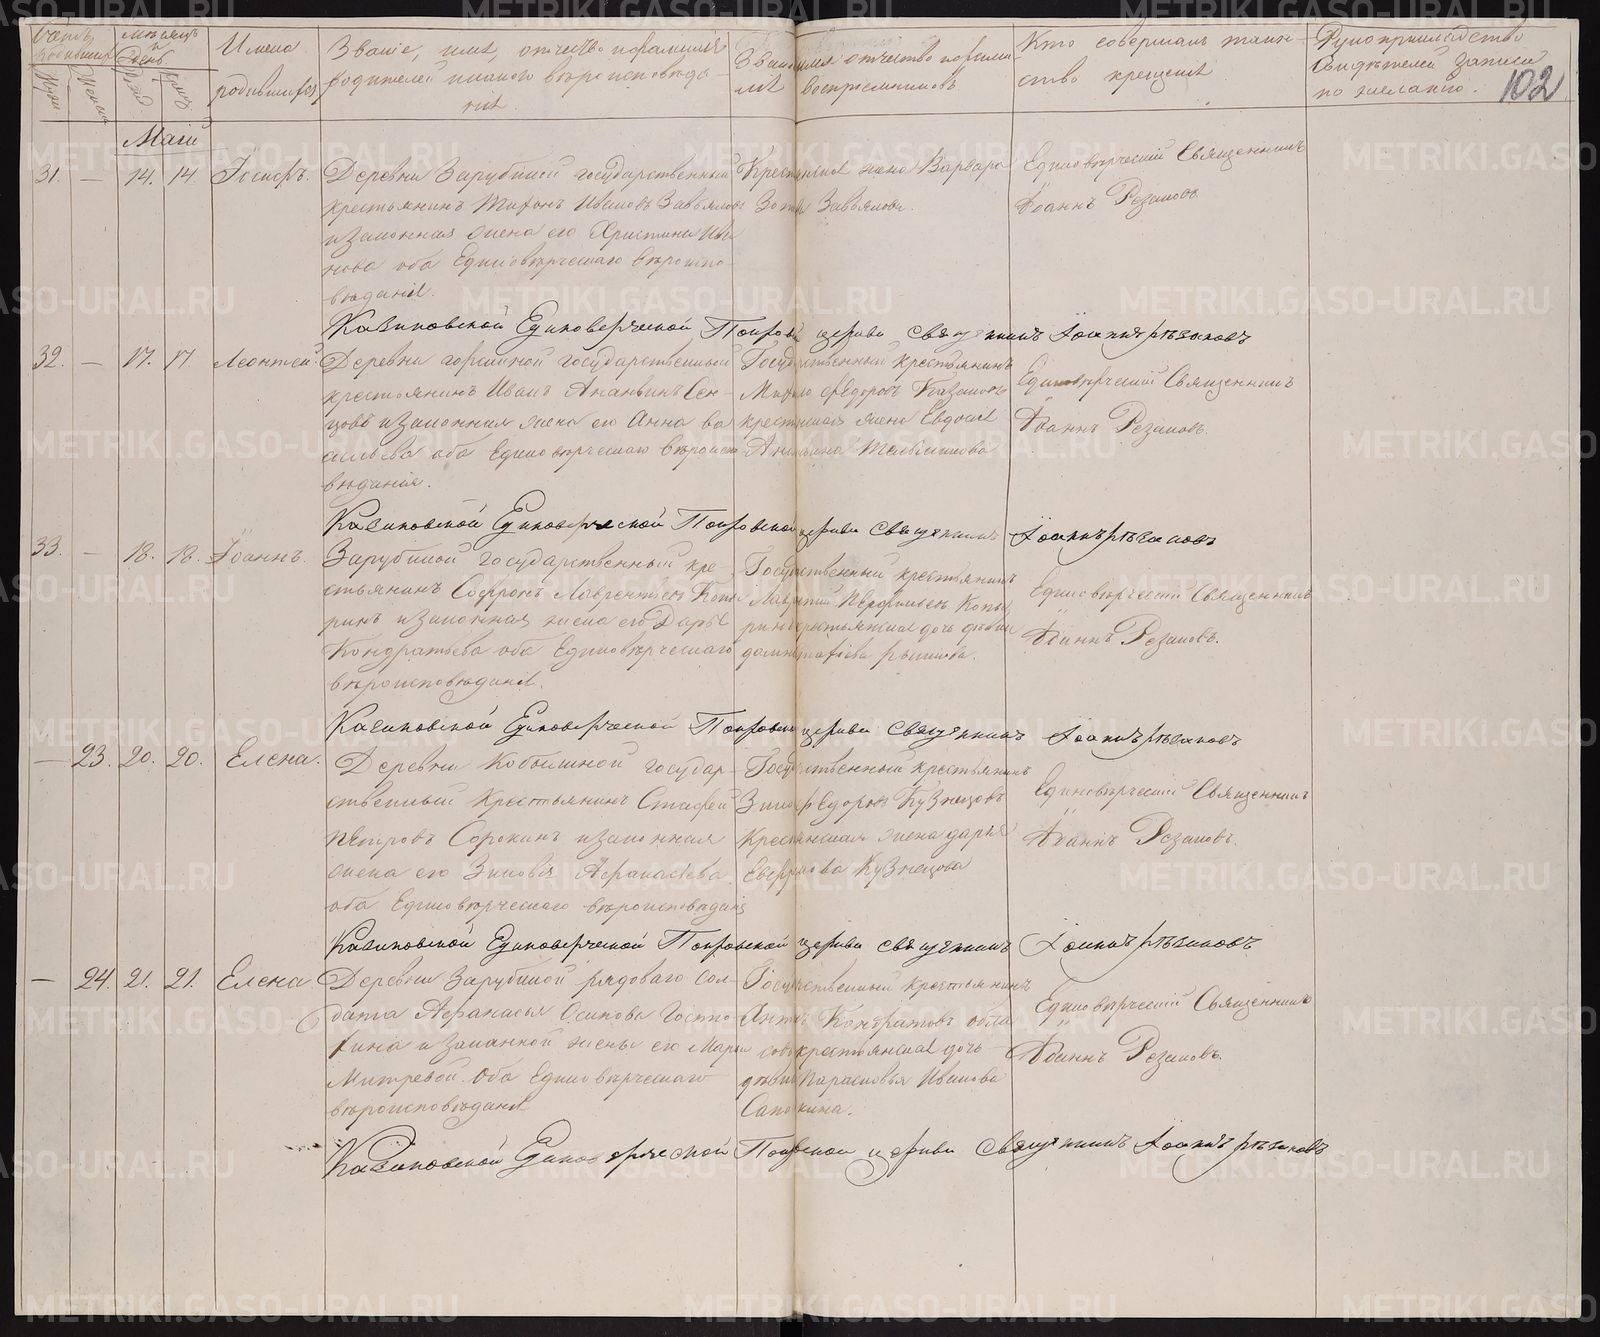 Счетъ родившихся
Мѣсяцъ и день
Имена родившихся
Званіе, имя, отчество и фамилія
родителей и какого вѣроисповѣда-
нія
Званіе имя отчество и фамил
ія воспріемниковъ
Кто совершалъ таин-
ство крещенія
Рукоприкладство
свидѣтелей записи
по желанію.
102
Маій
31. — 14. 14. Іосифъ.
Деревни Зарубиной государственный
крестьянинъ Тихонъ Ивановъ Завьяловъ
и законная жена его Христина Ива
нова оба Единовѣрческаго вѣроиспо-
вѣданія.
Крестьянская жена Варвара
Завьялова.
Единовѣрческій Священникъ
Іоаннъ Рѣзановъ
Единоверческой церкви священникъ Іоаннъ Рѣзановъ
32. — 17. 17. Леонтей
Деревни государственный
крестьянинъ Иванъ Ананьинъ
и законная жена его Анна Ва
сильева оба Единовѣрческаго вѣроиспо
вѣданія.
Государственный крестьянинъ
Федоровъ Казанцовъ
крестьянская жена Евдокія
Единовѣрческій Священникъ
Іоаннъ Резановъ.
Единоверческой Покровской церкви священникъ Іоаннъ Рѣзановъ
33. — 18. 18. Іоаннъ.
Зарубиной Государственный кре
стьянинъ Софронъ Лаврентьевъ Копы
ринъ и законная жена его Дарья
Кондратьева оба Единовѣрческаго
вѣроисповѣданія.
Государственный крестьянинъ
Копы
ринъ крестьянская дочь дѣвица
Единовѣрческій Священникъ
Іоаннъ Резановъ.
Единоверческой Покровской церкви священникъ Іоаннъ Рѣзановъ
— 23. 20. 20. Елена.
Деревни Кобылиной государ-
ственный крестьянинъ Стафей
Петровъ Сорокинъ и законная
жена его Зиновія Афанасіева
оба Единовѣрческаго вѣроисповѣданія
Государственный крестьянинъ
Федоровъ Кузнецовъ
Крестьянская жена дарья
Кузнецова
Единовѣрческій Священникъ
Іоаннъ Резановъ.
Единоверческой Покровской церкви священникъ Іоаннъ Рѣзановъ
— 24. 21. 21. Елена.
Деревни Зарубиной рядоваго сол-
дата Афанасья Осипова
и законной жены его Марьи
Митревой оба Единовѣрческаго
вѣроисповѣданія
Государственный крестьянинъ
Кондратовъ
крестьянская дочь
дѣвица Парасковья Иванова
Единовѣрческій Священникъ
Іоаннъ Резановъ.
Единоверческой церкви священникъ Іоаннъ Рѣзановъ
METRIKI.GASO-URAL.RU